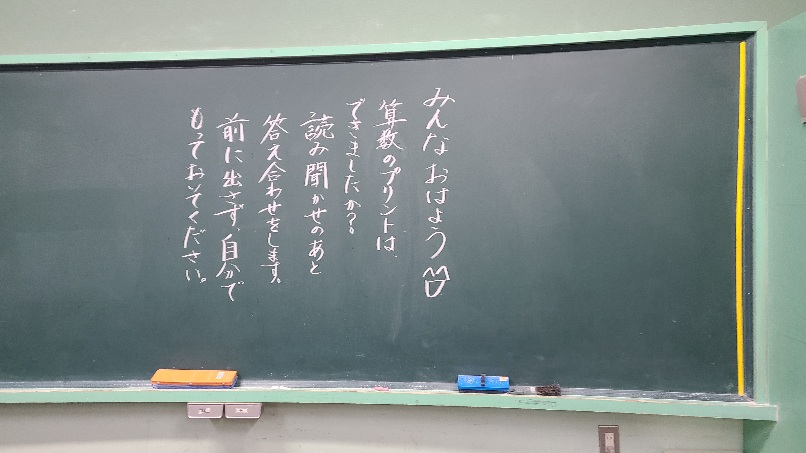 みんなおはよう
算数のプリントは、
できましたか?。
読み聞かせのあと
答え合わせをします。
前に出さず、自分で
もっておいてください。